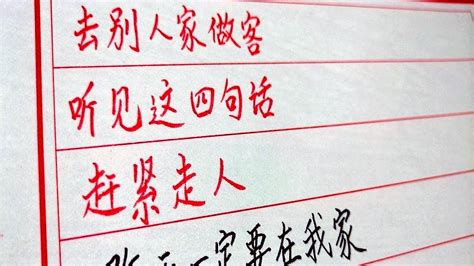 去别人家做客
听见这四句话
赶紧走人
一定要在我家